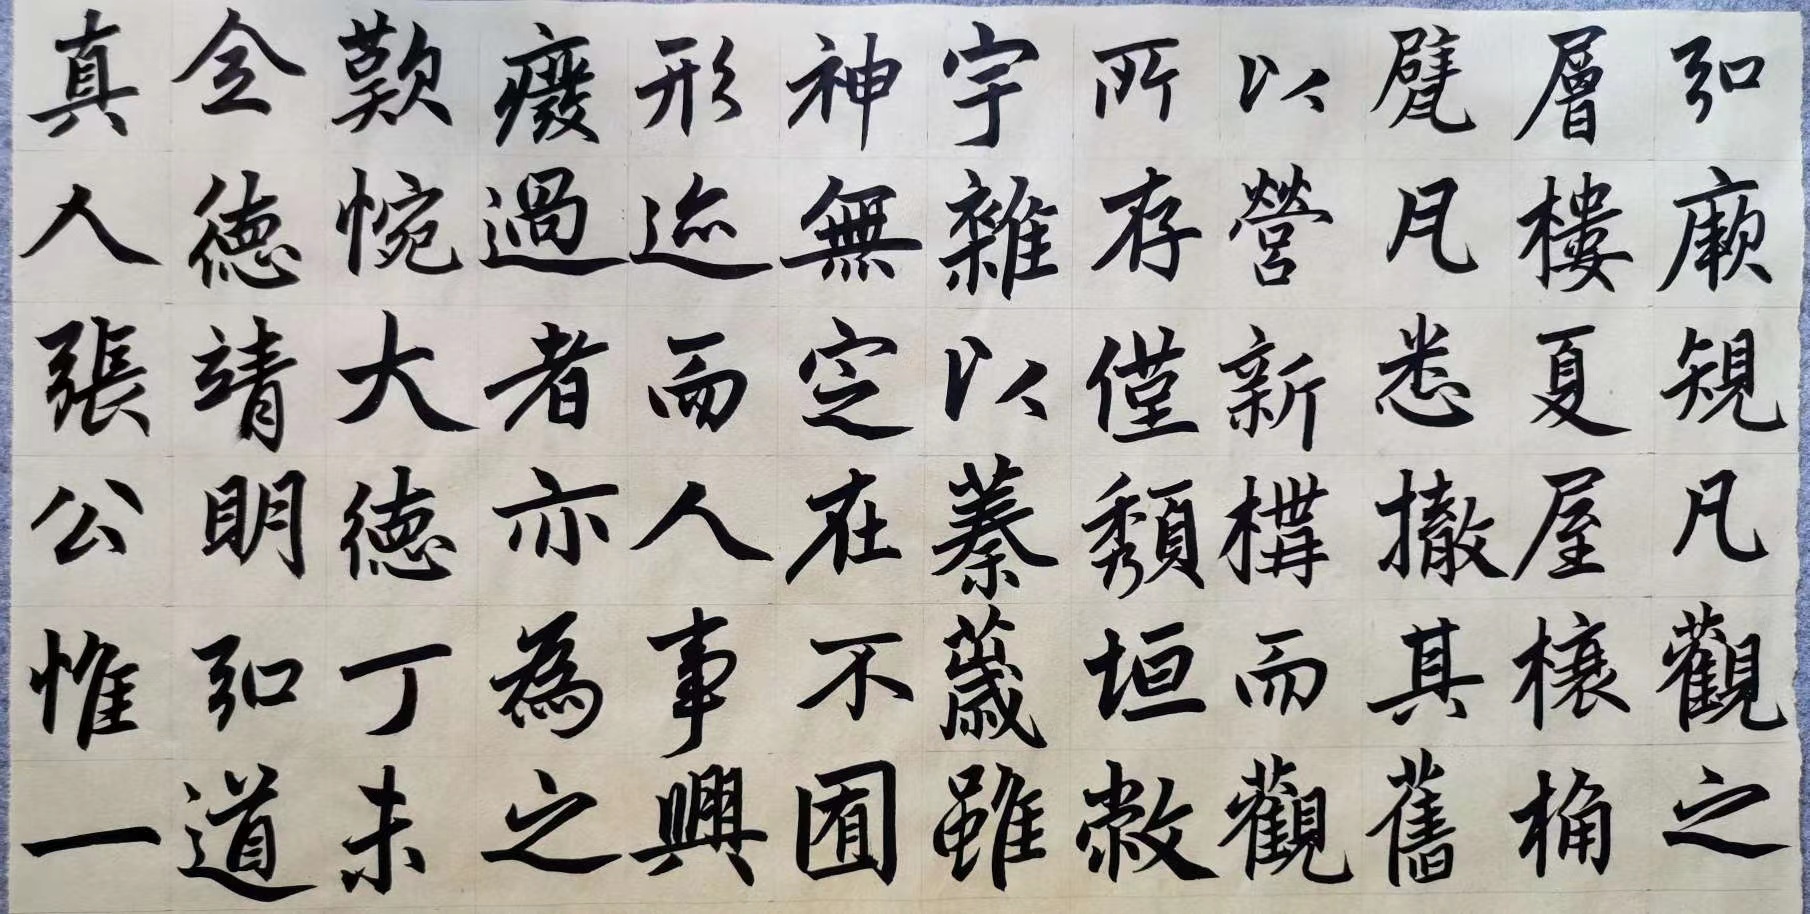 弘厥規凡觀之
層樓夏屋榱桷
甓瓦悉撤其舊
以營新構而觀
所存僅頽垣敝
宇雜以蓁薉雖
神無定在不囿
形迹而人事興
廢過者亦為之
歎惋大德丁未
全德靖明弘道
真人張公惟一